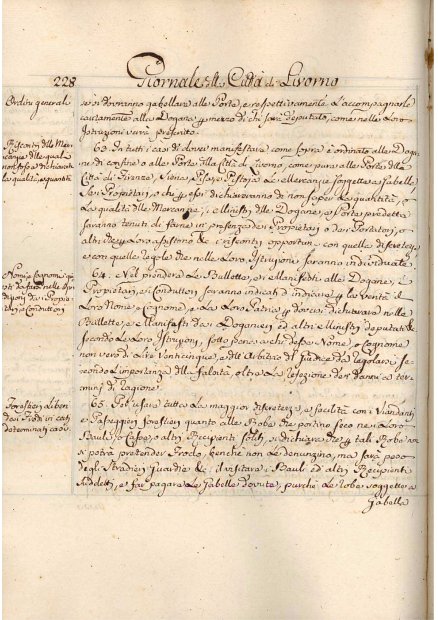 228
Giornale della Città di Livorno
Ordini generali
se si dovranno gabellare alle Porte, e respettivamente l'accompagnarle
cautamente alla Dogana per mezzo di chi sarà deputato, come nelle Loro
Istruzioni verrà prescritto.
Riscontri delle Mer-
canzie delle quali
non fosse dichiarata
la qualità, e quantità
63. In tutti i casi di dover manifestare come sopra è ordinato alle Doga-
ne di confine o alle Porte della Città di Livorno, come pure alle Porte della
Città di Firenze, Siena, Pisa, e Pistoja le Mercanzie soggette a Gabella
Se i Proprietari, o chi per essi dichiareranno di non sapere la quantità, o
la qualità delle Mercanzie, i Ministri delle Dogane, e Porte predette
saranno tenuti di farne in presenza dei Proprietari o dei Portatori, o
altri per Loro riscontri opportuni con quelle discretezze
e con quelle regole che nelle Loro Istruzioni saranno individuate.
Nomi, e Cognomi
dei Proprie-
tari, e Conduttori
64. Nel prendere le Bullette, e i Manifesti alle Dogane, i
Proprietari, e i Conduttori saranno indicare per la verità il
Loro Nome, e Cognome, e la Loro Patria per doversi dichiarare nelle
Bullette, e Manifesti dai Doganieri ed altri Ministri deputati
secondo le Loro Istruzioni, sotto pena a chi desse Nome, o Cognome
non veri di Lire Venticinque, ed Arbitrio del Giudice da regolarsi se-
condo l'importanza della falsità, oltre la refezione dei danni a ter-
mini di Ragione.
Forestieri
de Frodi in casi
determinati
65. Per usare tutta la maggior discretezza, e facilità con i Viandanti,
e Passeggieri forestieri quanto alle Robe che portino seco nei Loro
Bauli, o Casse, o altri Recipienti soliti, si dichiara che per tali Robe non
si potrà pretender Frodo, benchè non le denunzino, ma sarà però
degli Stradieri Guardie &c. il visitare i Bauli ed altri Recipienti
suddetti, e far pagare le Gabelle dovute, purchè le robe soggette a
Gabella